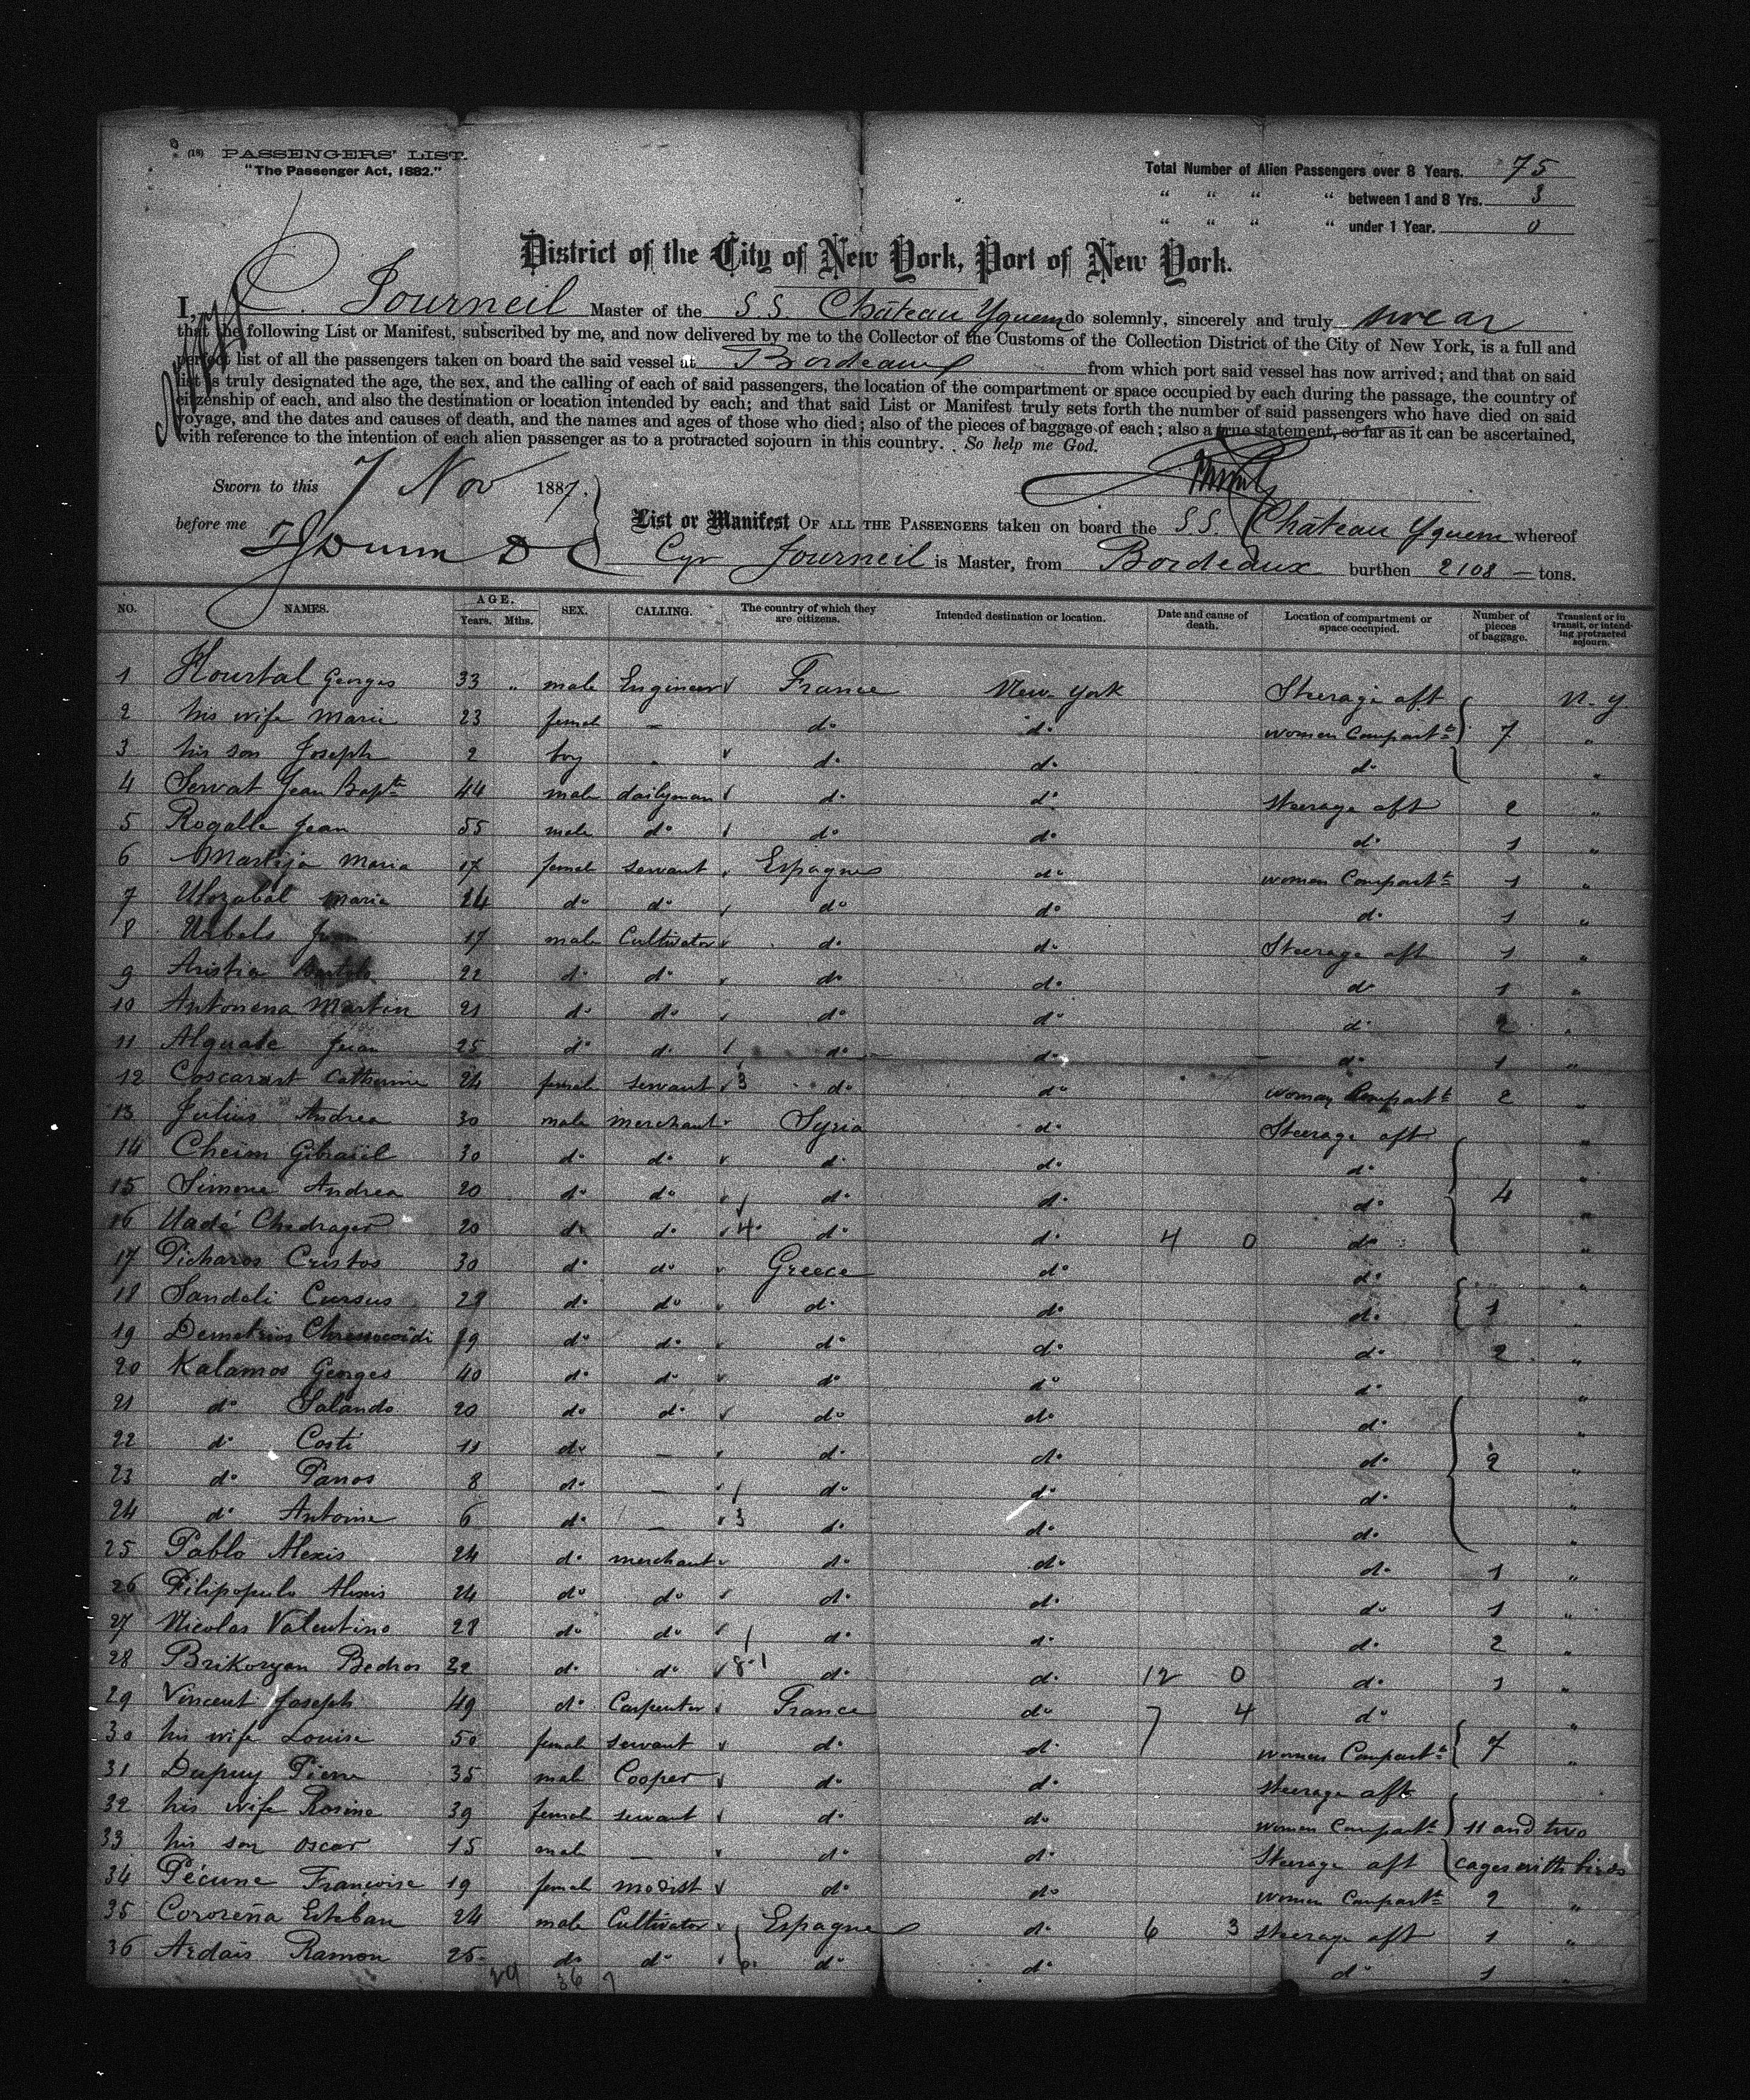 (18) PASSENGERS' LIST.
"The Passenger Act, 1882."
Total Number of Alien Passengers over 8 Years. 75
" " " " between 1 and 8 Yrs. 3
" " " " under 1 Year. 0
District of the City of New York, Port of New York.
I, C. Journeil Master of the S.S. Château Yquem do solemnly, sincerely and truly swear
that the following List or Manifest, subscribed by me, and now delivered by me to the Collector of the Customs of the Collection District of the City of New York, is a full and
perfect list of all the passengers taken on board the said vessel at Bordeaux from which port said vessel has now arrived; and that on said
list is truly designated the age, the sex, and the calling of each of said passengers, the location of the compartment or space occupied by each during the passage, the country of
citizenship of each, and also the destination or location intended by each; and that said List or Manifest truly sets forth the number of said passengers who have died on said
voyage, and the dates and causes of death, and the names and ages of those who died; also of the pieces of baggage of each; also a true statement, so far as it can be ascertained,
with reference to the intention of each alien passenger as to a protracted sojourn in this country. So help me God.
Sworn to this 7 Nov 1887.
before me
List or Manifest OF ALL THE PASSENGERS taken on board the S.S. Château Yquem whereof
Cyr Journeil is Master, from Bordeaux burthen 2108 — tons.
NO. NAMES. AGE. Years. Mths. SEX. CALLING. The country of which they are citizens. Intended destination or location. Date and cause of death. Location of compartment or space occupied. Number of pieces of baggage. Transient or in transit, or intending protracted sojourn.
1 Hourtal Georges 33 " male Engineer France New-York Steerage aft N-Y
2 his wife Marie 23 female — do do women Compartt 7 "
3 his son Joseph 2 boy do do do "
4 Servat Jean Bapte 44 male dailyman do do steerage aft 2 "
5 Rogalle Jean 55 male do do do do 1 "
6 Marteja Maria 17 female servant Espagne do women Compartt 1 "
7 Ulozabal Maria 24 do do do do do 1 "
8 Urbels 17 male Cultivator do do Steerage aft 1 "
9 Aristia 22 do do do do do 1 "
10 Antonena Martin 21 do do do do do 2 "
11 Alguate Juan 25 do do do do do 1 "
12 Coscarart Catherine 24 female servant 3 do do woman Compartt 2 "
13 Julius Andrea 30 male merchant Syria do Steerage aft "
14 Cheim Gibrail 30 do do do do do "
15 Simone Andrea 20 do do do do do 4 "
16 Uadé Chedrager 20 do do 4 do do 4 0 do "
17 Picharos Cristos 30 do do Greece do do "
18 Sandeli Cursus 29 do do do do do 1 "
19 Demetrios 19 do do do do do 2 "
20 Kalamos Georges 40 do do do do do "
21 do Salando 20 do do do do do "
22 do Costi 11 do — do do do 2 "
23 do Panos 8 do — do do do "
24 do Antoine 6 do — 3 do do do "
25 Pablo Alexis 24 do merchant do do do 1 "
26 Filipopulo Alexis 24 do do do do do 1 "
27 Nicolas Valentino 28 do do do do do 2 "
28 Brikoryan Bedros 32 do do 8-1 do do 12 0 do 1 "
29 Vincent Joseph 49 do Carpenter France do 7 4 do "
30 his wife Louise 50 female servant do do women Compartt 7 "
31 Dupuy Pierre 35 male Cooper do do steerage aft
32 his wife Rosine 39 female servant do do women Compartt 11 and two
33 his son Oscar 15 male — do do Steerage aft cages with birds
34 Pécune Françoise 19 female modist do do women Compartt 2 "
35 Cororeña Esteban 24 male Cultivator Espagne do 6 3 steerage aft 1 "
36 Ardais Ramon 25 do do do do do 1 "
29 36 7